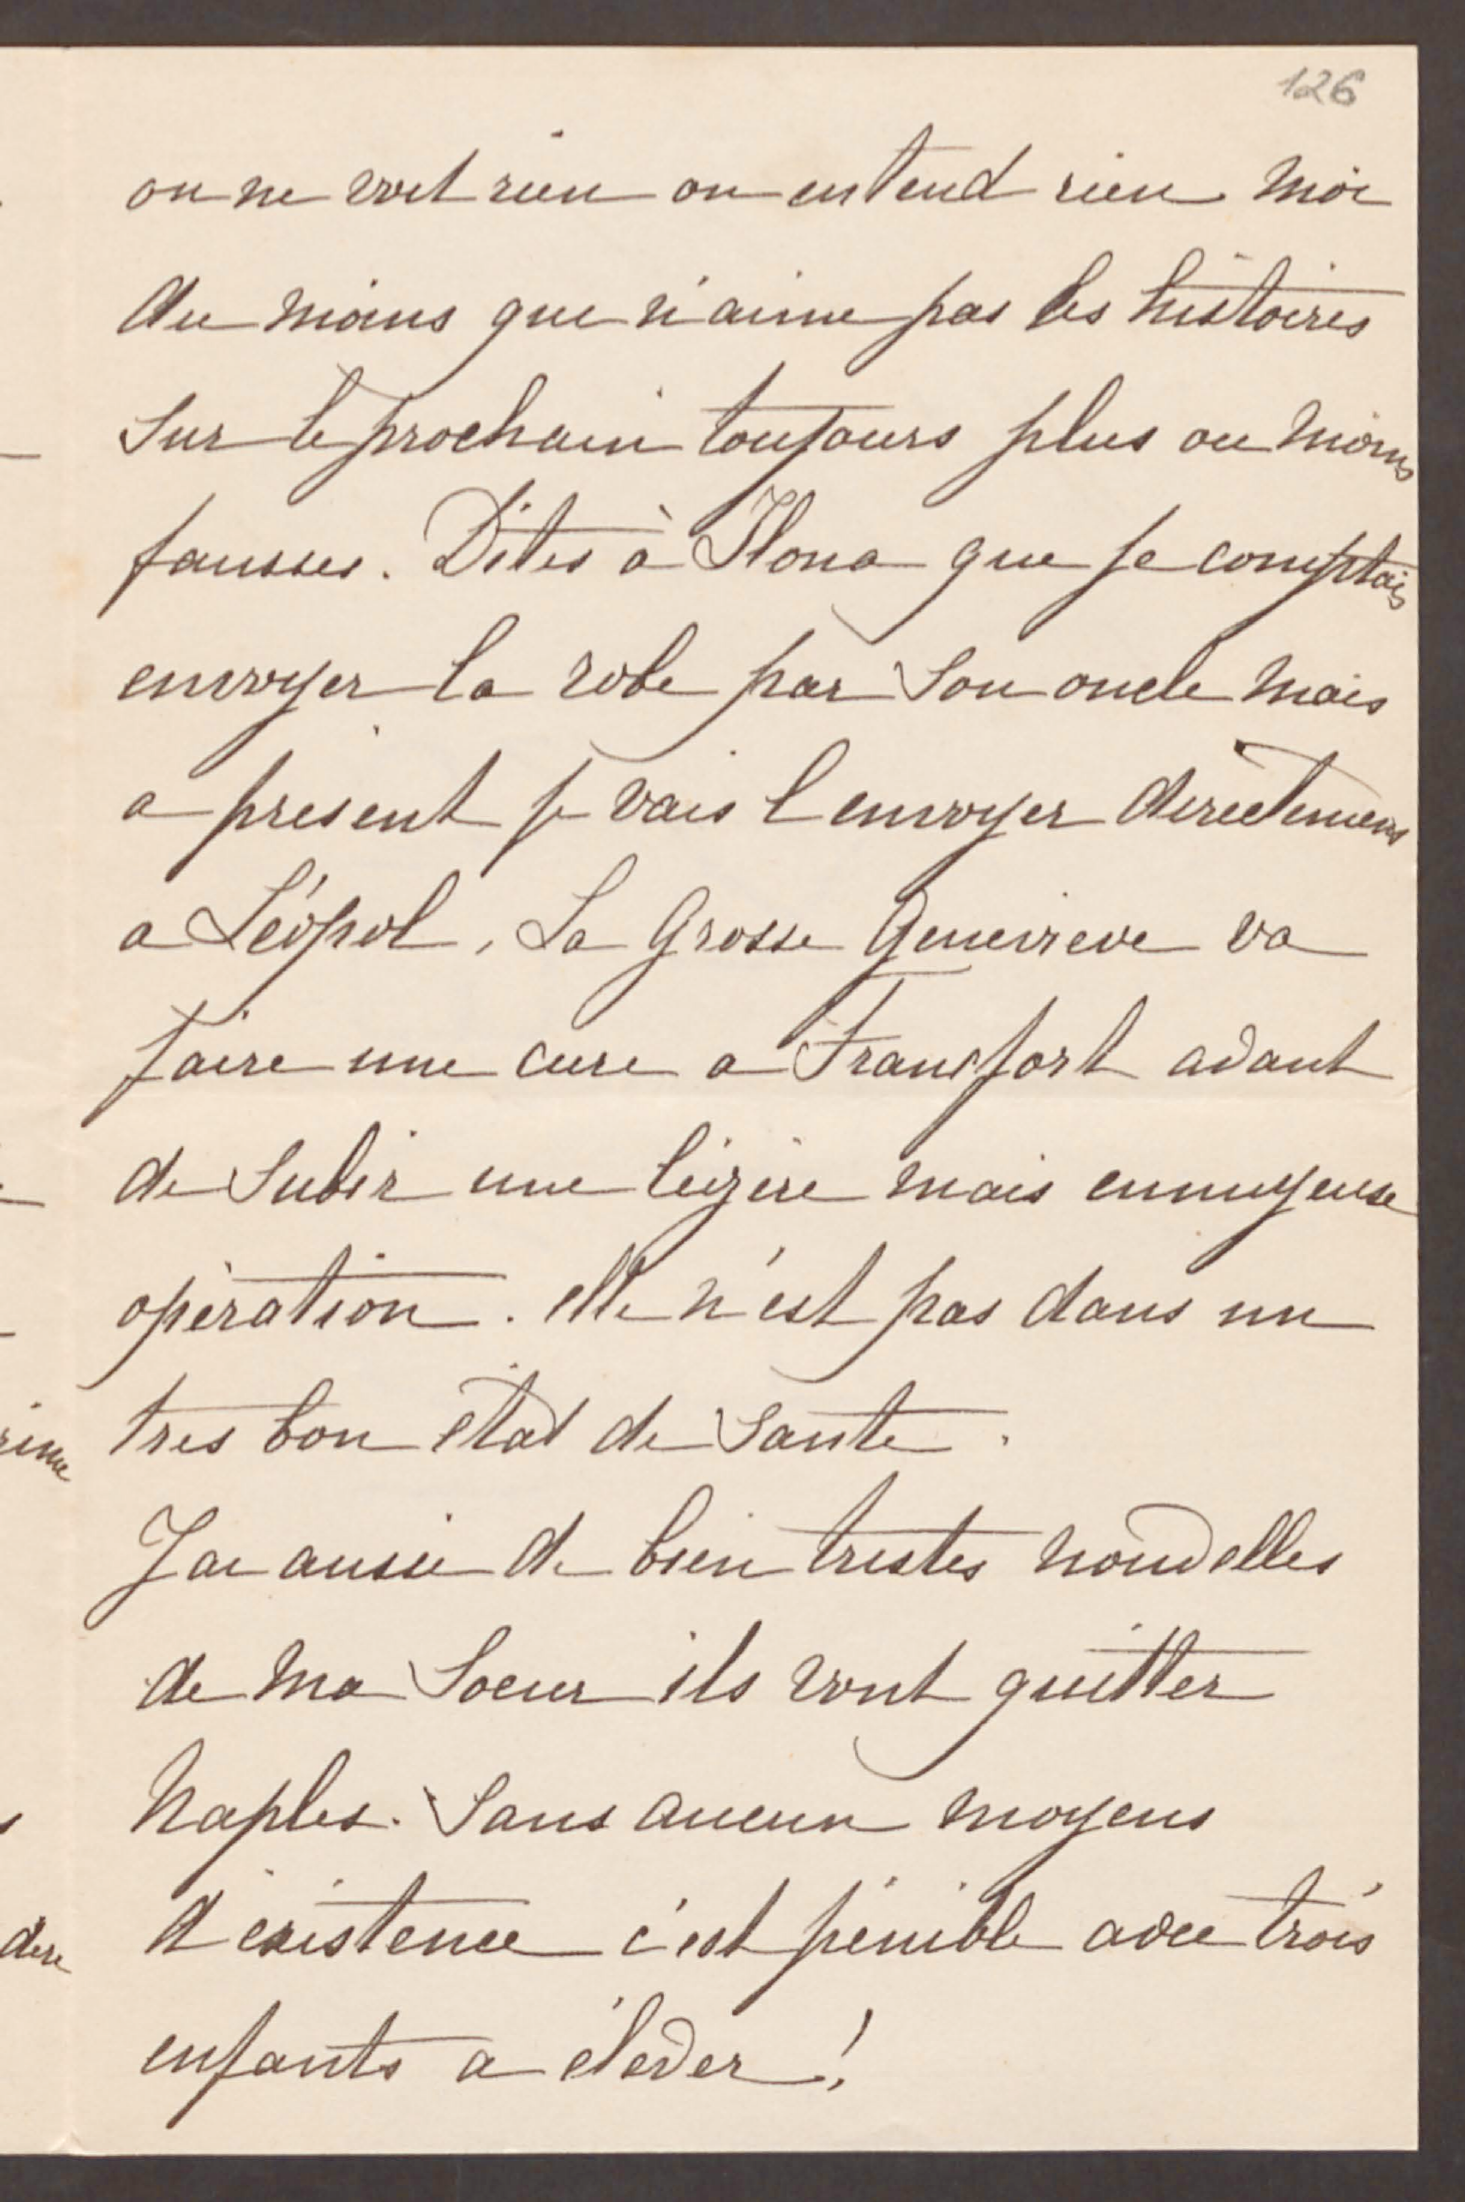 126
on ne voit rien on entend rien moi
du moins que n'aime pas les histoires
sur le prochain toujours plus ou moins
fausses. Dites à Ilona que je comptais
envoyer la robe par son oncle mais
a present je vais l envoyer directemens
a Léopol. La Grosse Genevieve va
faire une cure a Francfort avant
de subir une légère mais ennuyeuse
opération. elle n'est pas dans un
tres bon état de santé.
J'ai aussi de bien tristes nouvelles
de ma soeur ils vont quitter
Naples. Sans aucun moyens
d existence c'est pénible avec trois
enfants a élever !